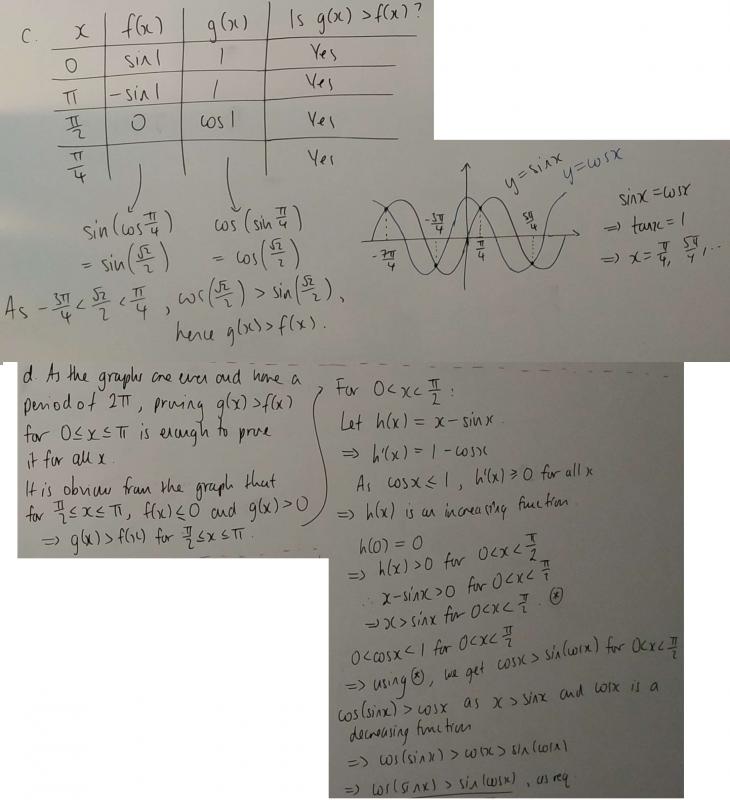 C.
x f(x) g(x) Is g(x) > f(x)?
0 sin1 1 Yes
π -sin1 1 Yes
π/2 0 cos1 Yes
π/4 Yes
sin(cos π/4) cos(sin π/4)
= sin(√2/2) = cos(√2/2)
As -3π/4 < √2/2 < π/4, cos(√2/2) > sin(√2/2),
hence g(x) > f(x).
y=sinx y=cosx
-7π/4 -3π/4 π/4 5π/4
sinx = cosx
⇒ tanx = 1
⇒ x = π/4, 5π/4, ...
d. As the graphs are even and have a
period of 2π, proving g(x) > f(x)
for 0 ≤ x ≤ π is enough to prove
it for all x.
It is obvious from the graph that
for π/2 ≤ x ≤ π, f(x) ≤ 0 and g(x) > 0
⇒ g(x) > f(x) for π/2 ≤ x ≤ π.
For 0 < x < π/2 :
Let h(x) = x - sinx
⇒ h'(x) = 1 - cosx
As cosx ≤ 1, h'(x) ≥ 0 for all x
⇒ h(x) is an increasing function
h(0) = 0
⇒ h(x) > 0 for 0 < x < π/2
∴ x - sinx > 0 for 0 < x < π/2
⇒ x > sinx for 0 < x < π/2. ⊛
0 < cosx < 1 for 0 < x < π/2
⇒ using ⊛, we get cosx > sin(cosx) for 0 < x < π/2
cos(sinx) > cosx as x > sinx and cosx is a
decreasing function
⇒ cos(sinx) > cosx > sin(cosx)
⇒ cos(sinx) > sin(cosx), as req